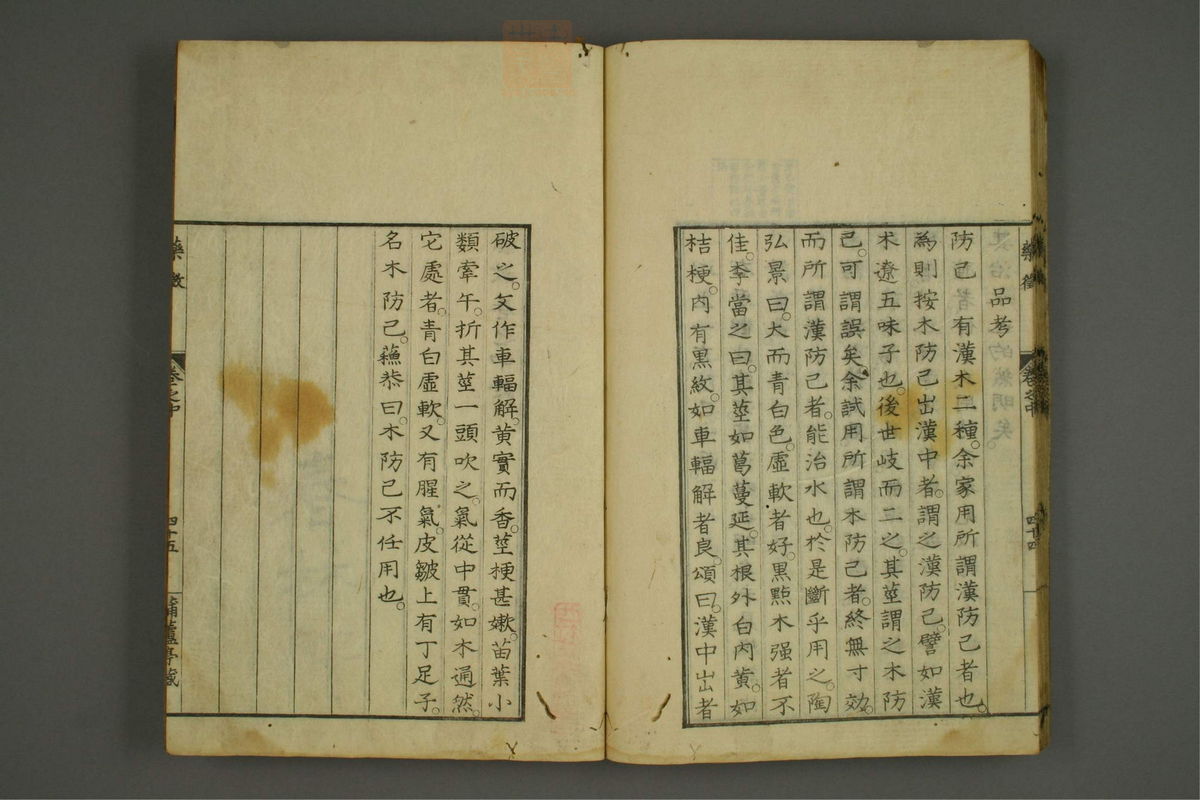 藥徵 卷之中 四十四
品考
防己者有漢木二種。余家用所謂漢防己者也。
為則按木防己出漢中者。謂之漢防己。譬如漢
朮遼五味子也。後世岐而二之。其莖謂之木防
己。可謂誤矣。余試用。所謂木防己者。終無寸效。
而所謂漢防己者。能治水也。於是斷乎用之。陶
弘景曰。大而青白色。虛軟者好。黑點木强者不
佳。李當之曰。其莖如葛蔓延。其根外白內黃。如
桔梗。內有黑紋。如車輻解者良。頌曰。漢中出者
破之。文作車輻解。黃實而香。莖梗甚嫩。苗葉小
類牽牛。折其莖一頭吹之。氣從中貫。如木通然。
它處者。青白虛軟。又有腥氣。皮皺上有丁足子。
名木防己。蘓恭曰。木防己不任用也。
藥徵 卷之中 四十五